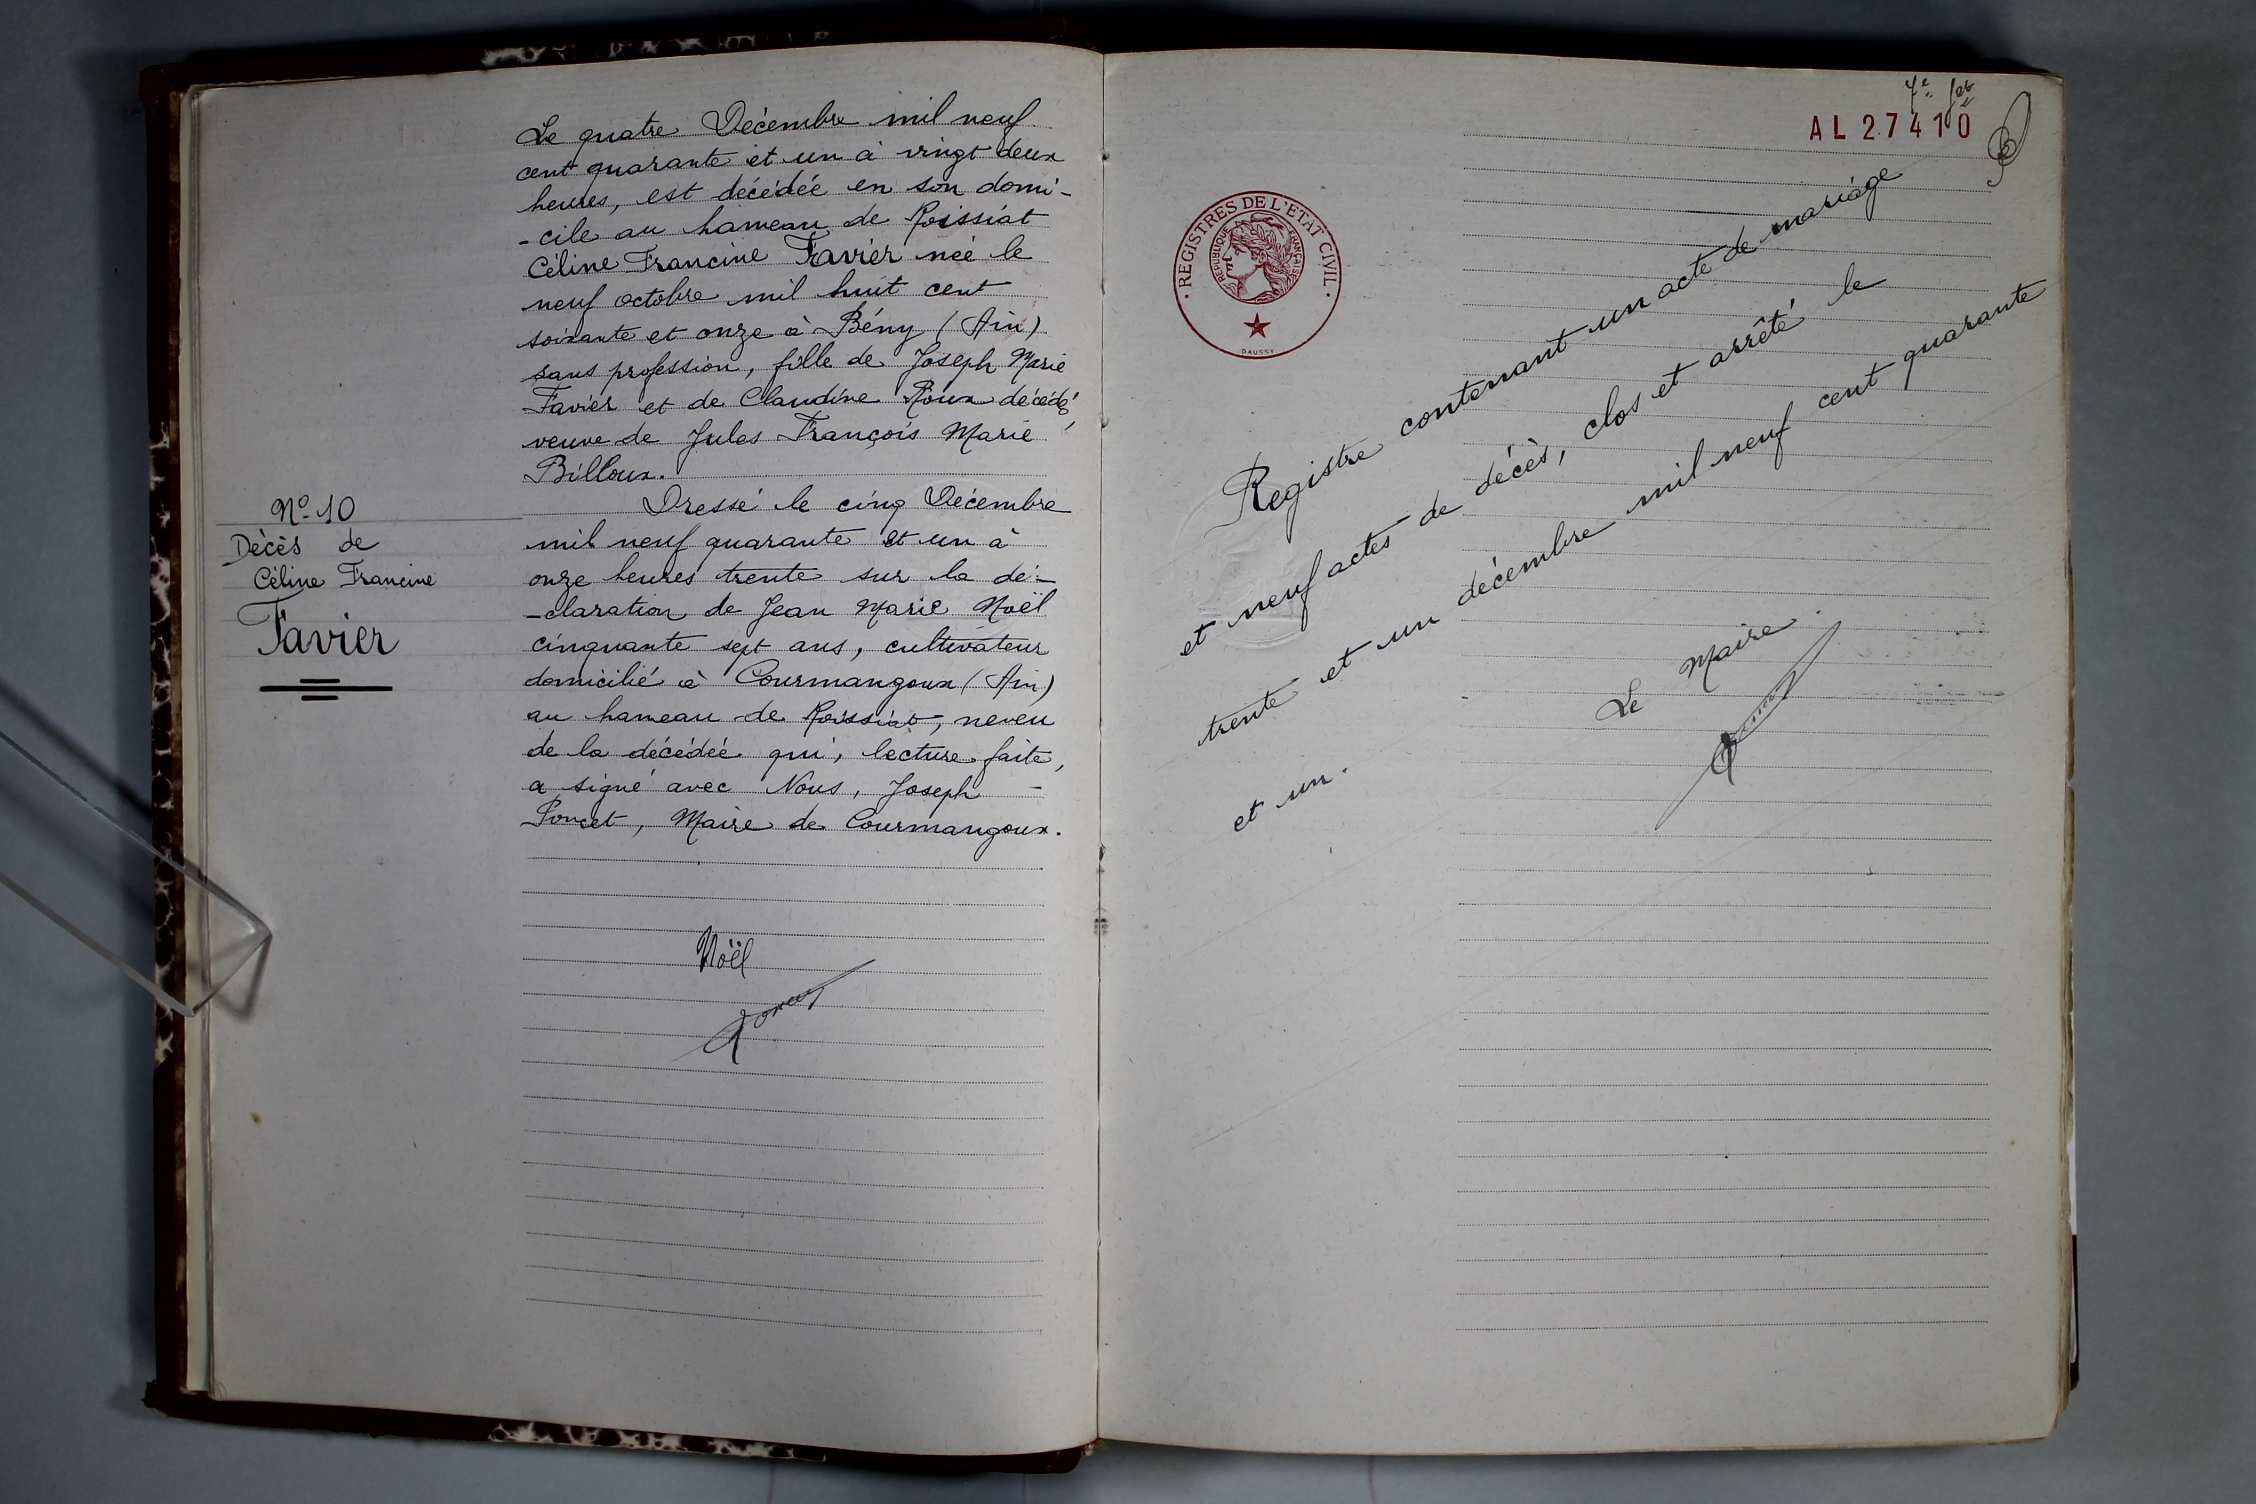 Le quatre Décembre mil neuf
cent quarante et un à vingt deux
heures, est décédée en son domi-
-cile au hameau de Roissiat
Céline Francine Favier née le
neuf octobre mil huit cent
soixante et onze à Bény (Ain)
sans profession, fille de Joseph Marie
Favier et de Claudine Roux décédés,
veuve de Jules François Marie
Billoux.
Nº 10
Décès de
Céline Francine
Favier
Dressé le cinq Décembre
mil neuf quarante et un à
onze heures trente sur la dé-
-claration de Jean Marie Noël
cinquante sept ans, cultivateur
domicilié à Courmangoux (Ain)
au hameau de Roissiat, neveu
de la décédée qui, lecture faite,
a signé avec Nous, Joseph -
Poncet, Maire de Courmangoux.
Noël
Poncet
AL 27410
REGISTRES DE L'ETAT CIVIL
REPUBLIQUE FRANÇAISE
DAUSSY
Registre contenant un acte de mariage
et neuf actes de décès, clos et arrêté le
trente et un décembre mil neuf cent quarante
et un.
Le Maire
Poncet